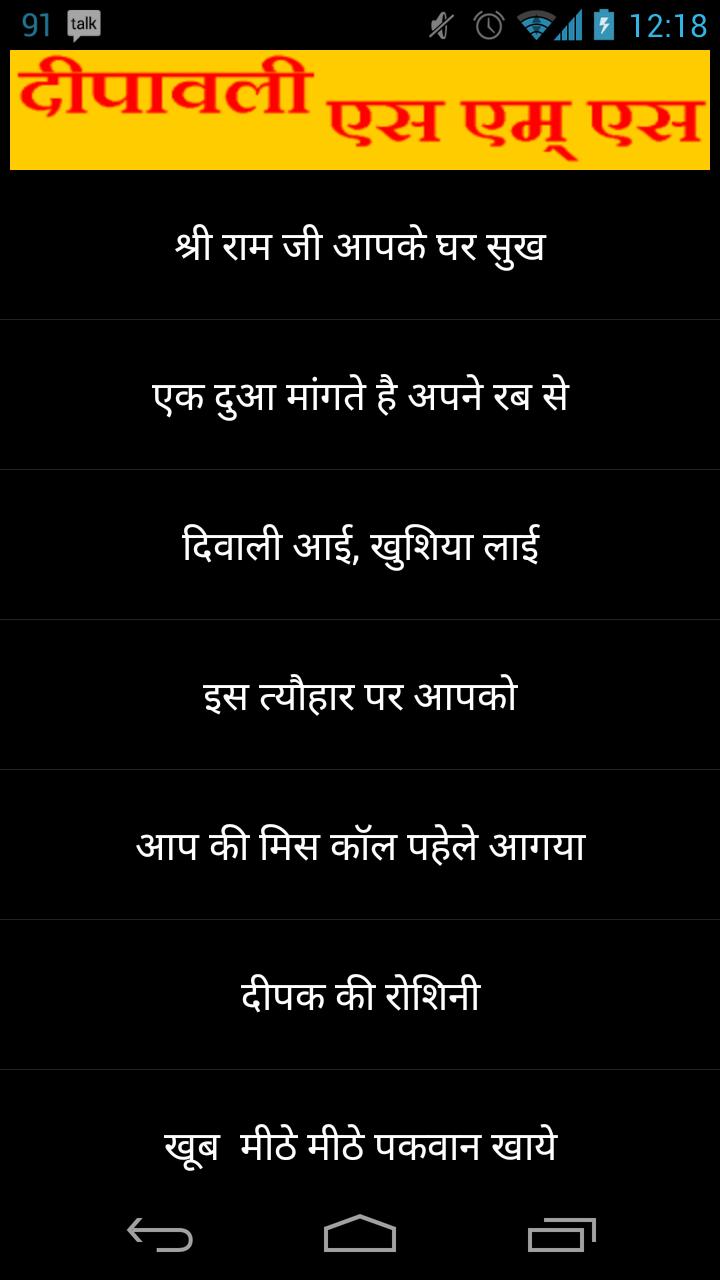 91 talk 12:18
दीपावली एस एम् एस
श्री राम जी आपके घर सुख
एक दुआ मांगते है अपने रब से
दिवाली आई, खुशिया लाई
इस त्यौहार पर आपको
आप की मिस कॉल पहेले आगया
दीपक की रोशिनी
खूब  मीठे मीठे पकवान खाये